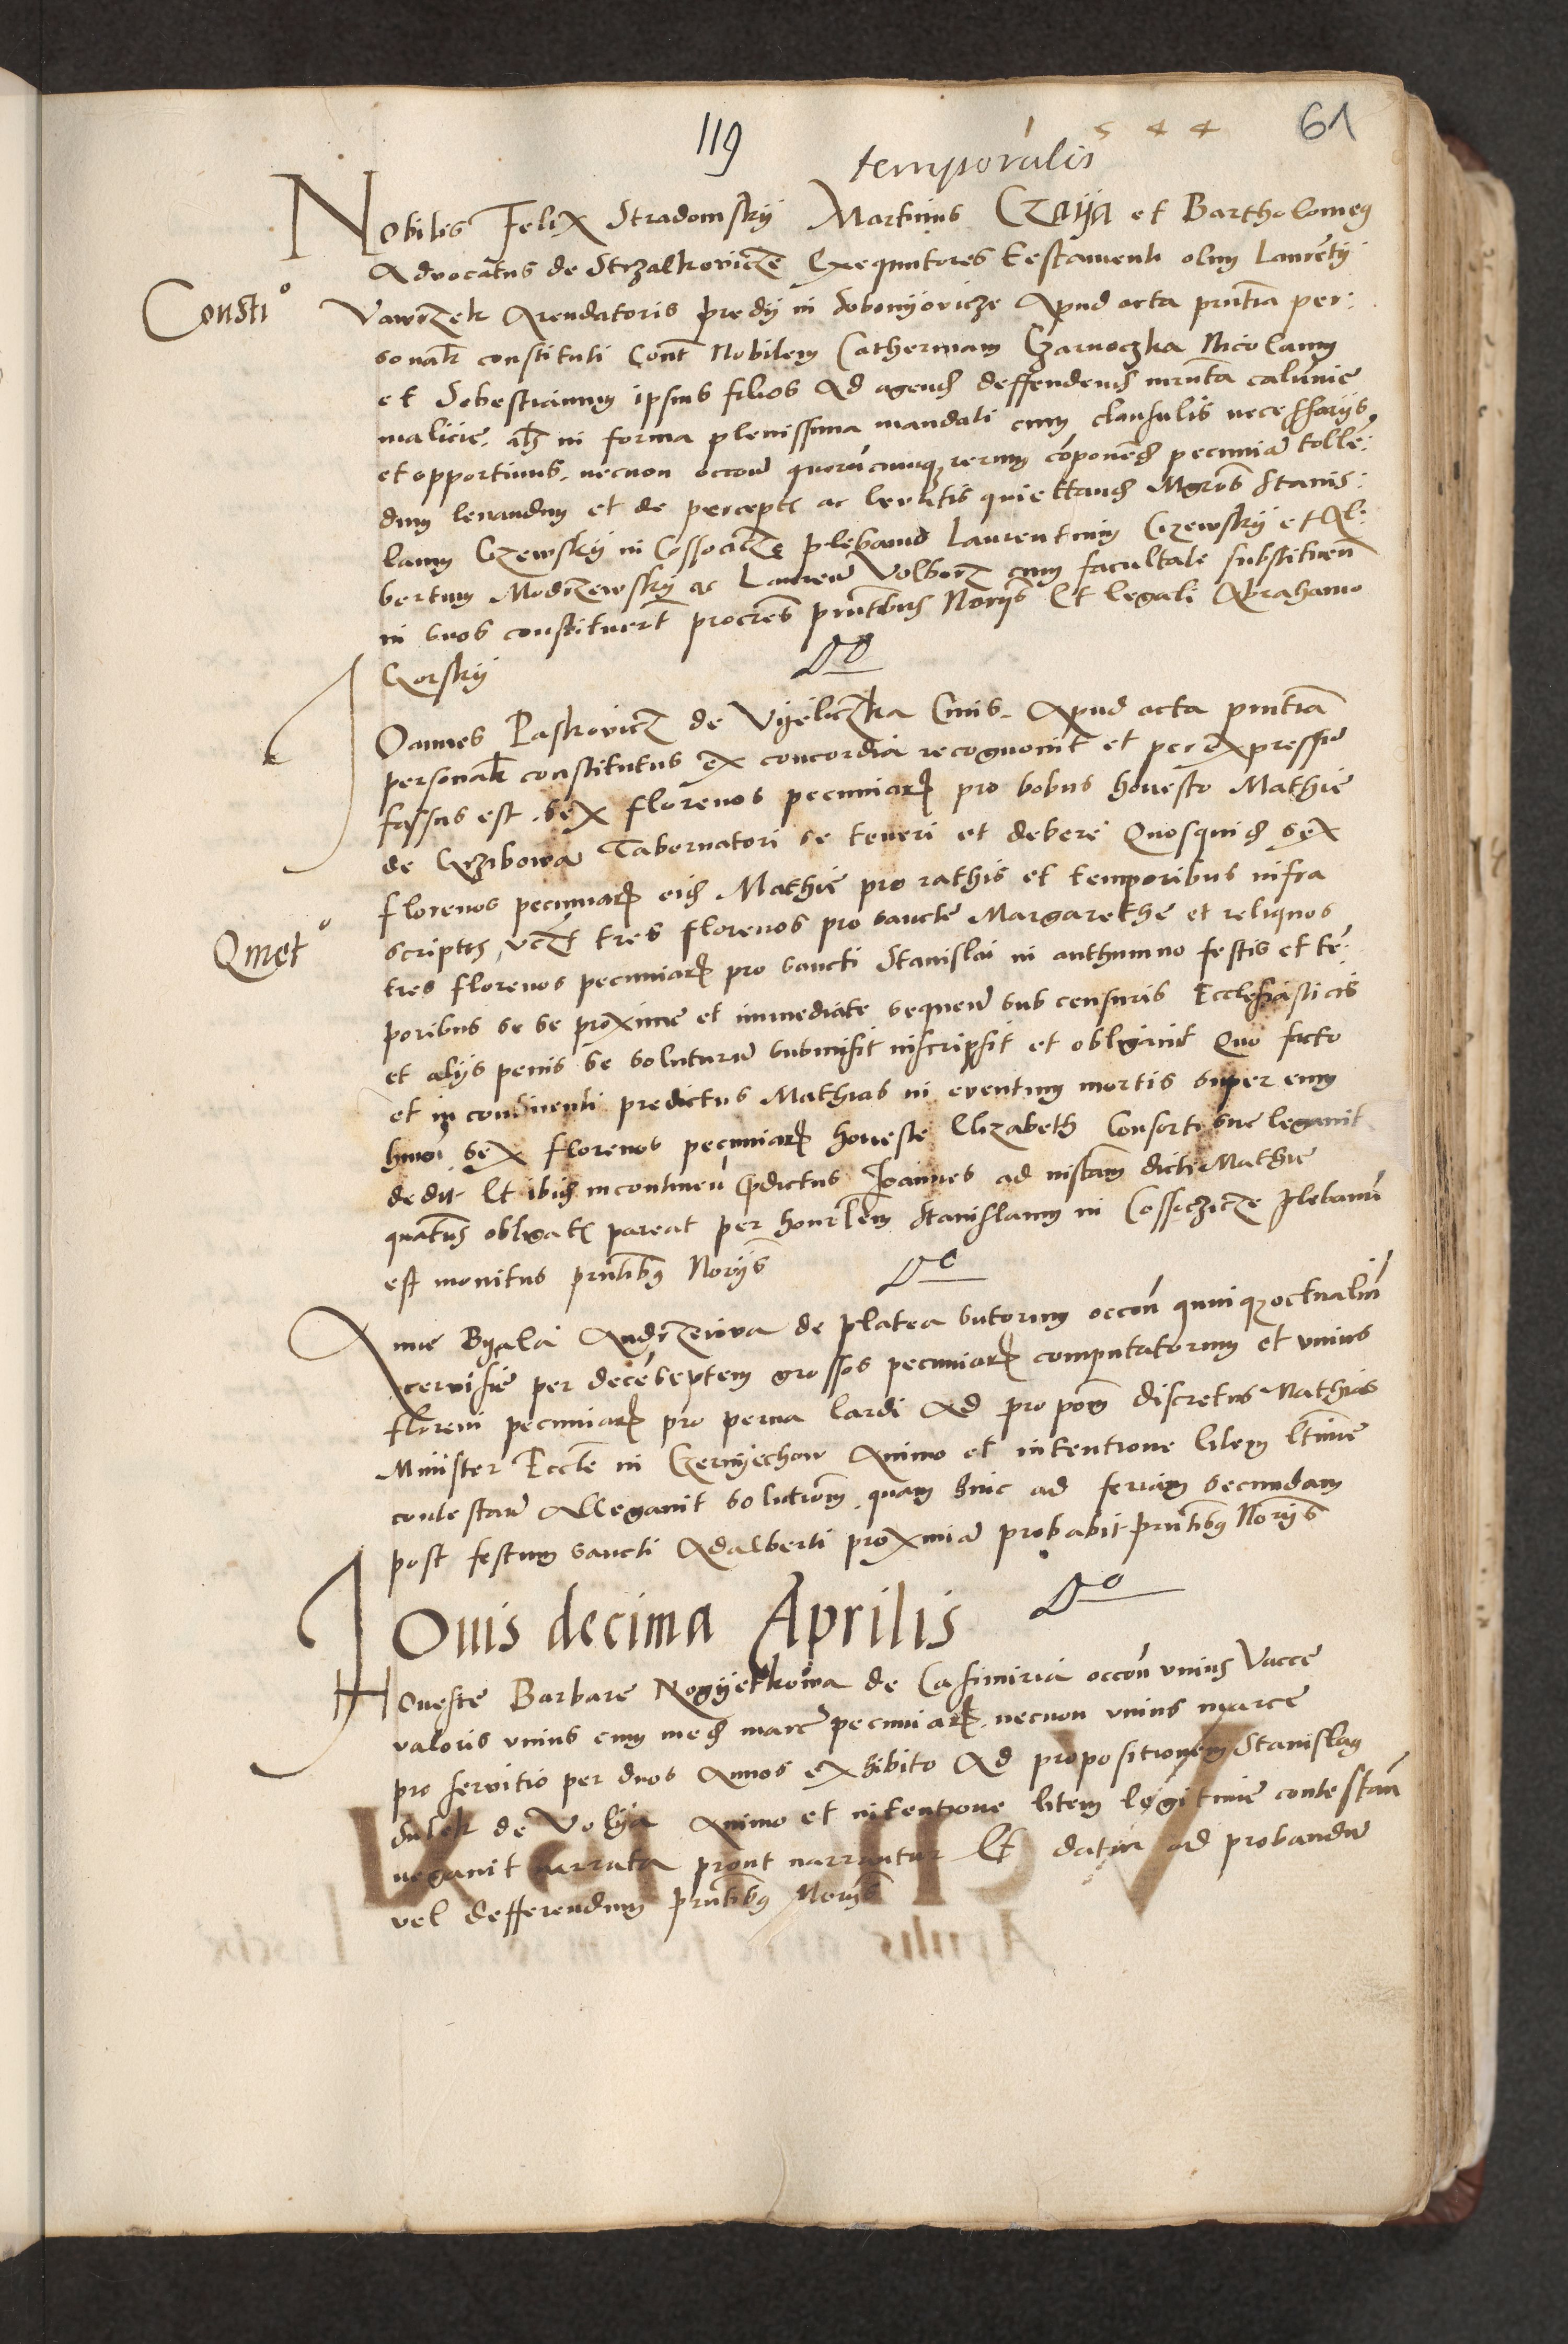 119
1 5 4 4
61
temporalis
Nobiles Felix Stradomskÿ Martinus Czaÿa et Bartholomeg
Advocatus de Strzalkovicze Exequutores testamenti olim Laurentÿ
Consti°
Vawrzek Arendatoris predÿ in Sobonÿovicze Apud acta pnŧia per:
sonalr constituti Cont Nobilem Catherinam Czarnoczka Nicolaum
et Sobestianum ipsius filios Ad agend deffendend iurandū calūnie
malicie. in forma plenissima mandati cum clausulis necessarÿs
et opportunis. necnon occoe quorūcumq rerum cōponend pecuniā tollē:
dum levandum et de percept ac levatis quiettand Mgros Stanis:
laum Gzewskÿ in Cossocicze plebanū Laurentium Gzewskÿ et Al:
bertum Modrzewskÿ ac Laurentiū Volborz cum facultate substituen
in suos constituert procres pnŧibus Norÿs Et legali Abrahamo
Gorskÿ
Joannes Paskovicz de Vÿeliczka Civis. Apud acta pnŧia
personalr constitutus ex concordia recognovit et per expressū
fassus est. sex florenos pecuniar pro bobus honesto Mathie
de Grzibowa Tabernatori se teneri et debere Quosquid sex
florenos pecuniar eid Mathie pro rathis et temporibus infra
Qmet°
scriptis vczt tres florenos pro sancte Margarethe et reliquos
tres florenos pecuniar pro sancti Stanislai in authumno festis et tē:
poribus se se proxime et immediate sequeñ sub censuris Ecclesiasticis
et alÿs penis se soluturū submisit inscripsit et obligavit Quo facto
et in continenti predictus Mathias in eventum mortis super eum
hmōi sex florenos pecuniar honeste Elizabeth Consorti sue legavit
dedit Et ibid incontineñ Pdictus Joannes ad instam dicti Mathie
quatenus obligat pareat per honrlem Stanislaum in Cossczicze plebanū
est monitus pnŧibus Norÿs
Anne Bÿala Andrzeiova de platea sutorum occoñ quinq octualiū
cervisie per decē septem grossos pecuniar computatorum et unius
floreni pecuniar pro perna lardi Ad propom discretus Mathias
Minister Eccle in Czernÿechow Animo et intentione litem ltime
contestañ Allegavit solutiom. quam hinc ad feriam secundam
post festum sancti Adalberti proximā probabit pnŧibus Norÿs
Jovis decima Aprilis
Honeste Barbare Rogÿetkowa de Casimiria occoñ unius Vacce
valoris unius cum med marce pecuniar. necnon unius marce
pro servitio per duos Annos exhibito Ad propositionem Stanislaus
Sulek de Volÿa Animo et intentione litem legitime contestañ
negavit narrata prout narrantur Et datur ad probandū
vel defferendum pnŧibus Norÿs